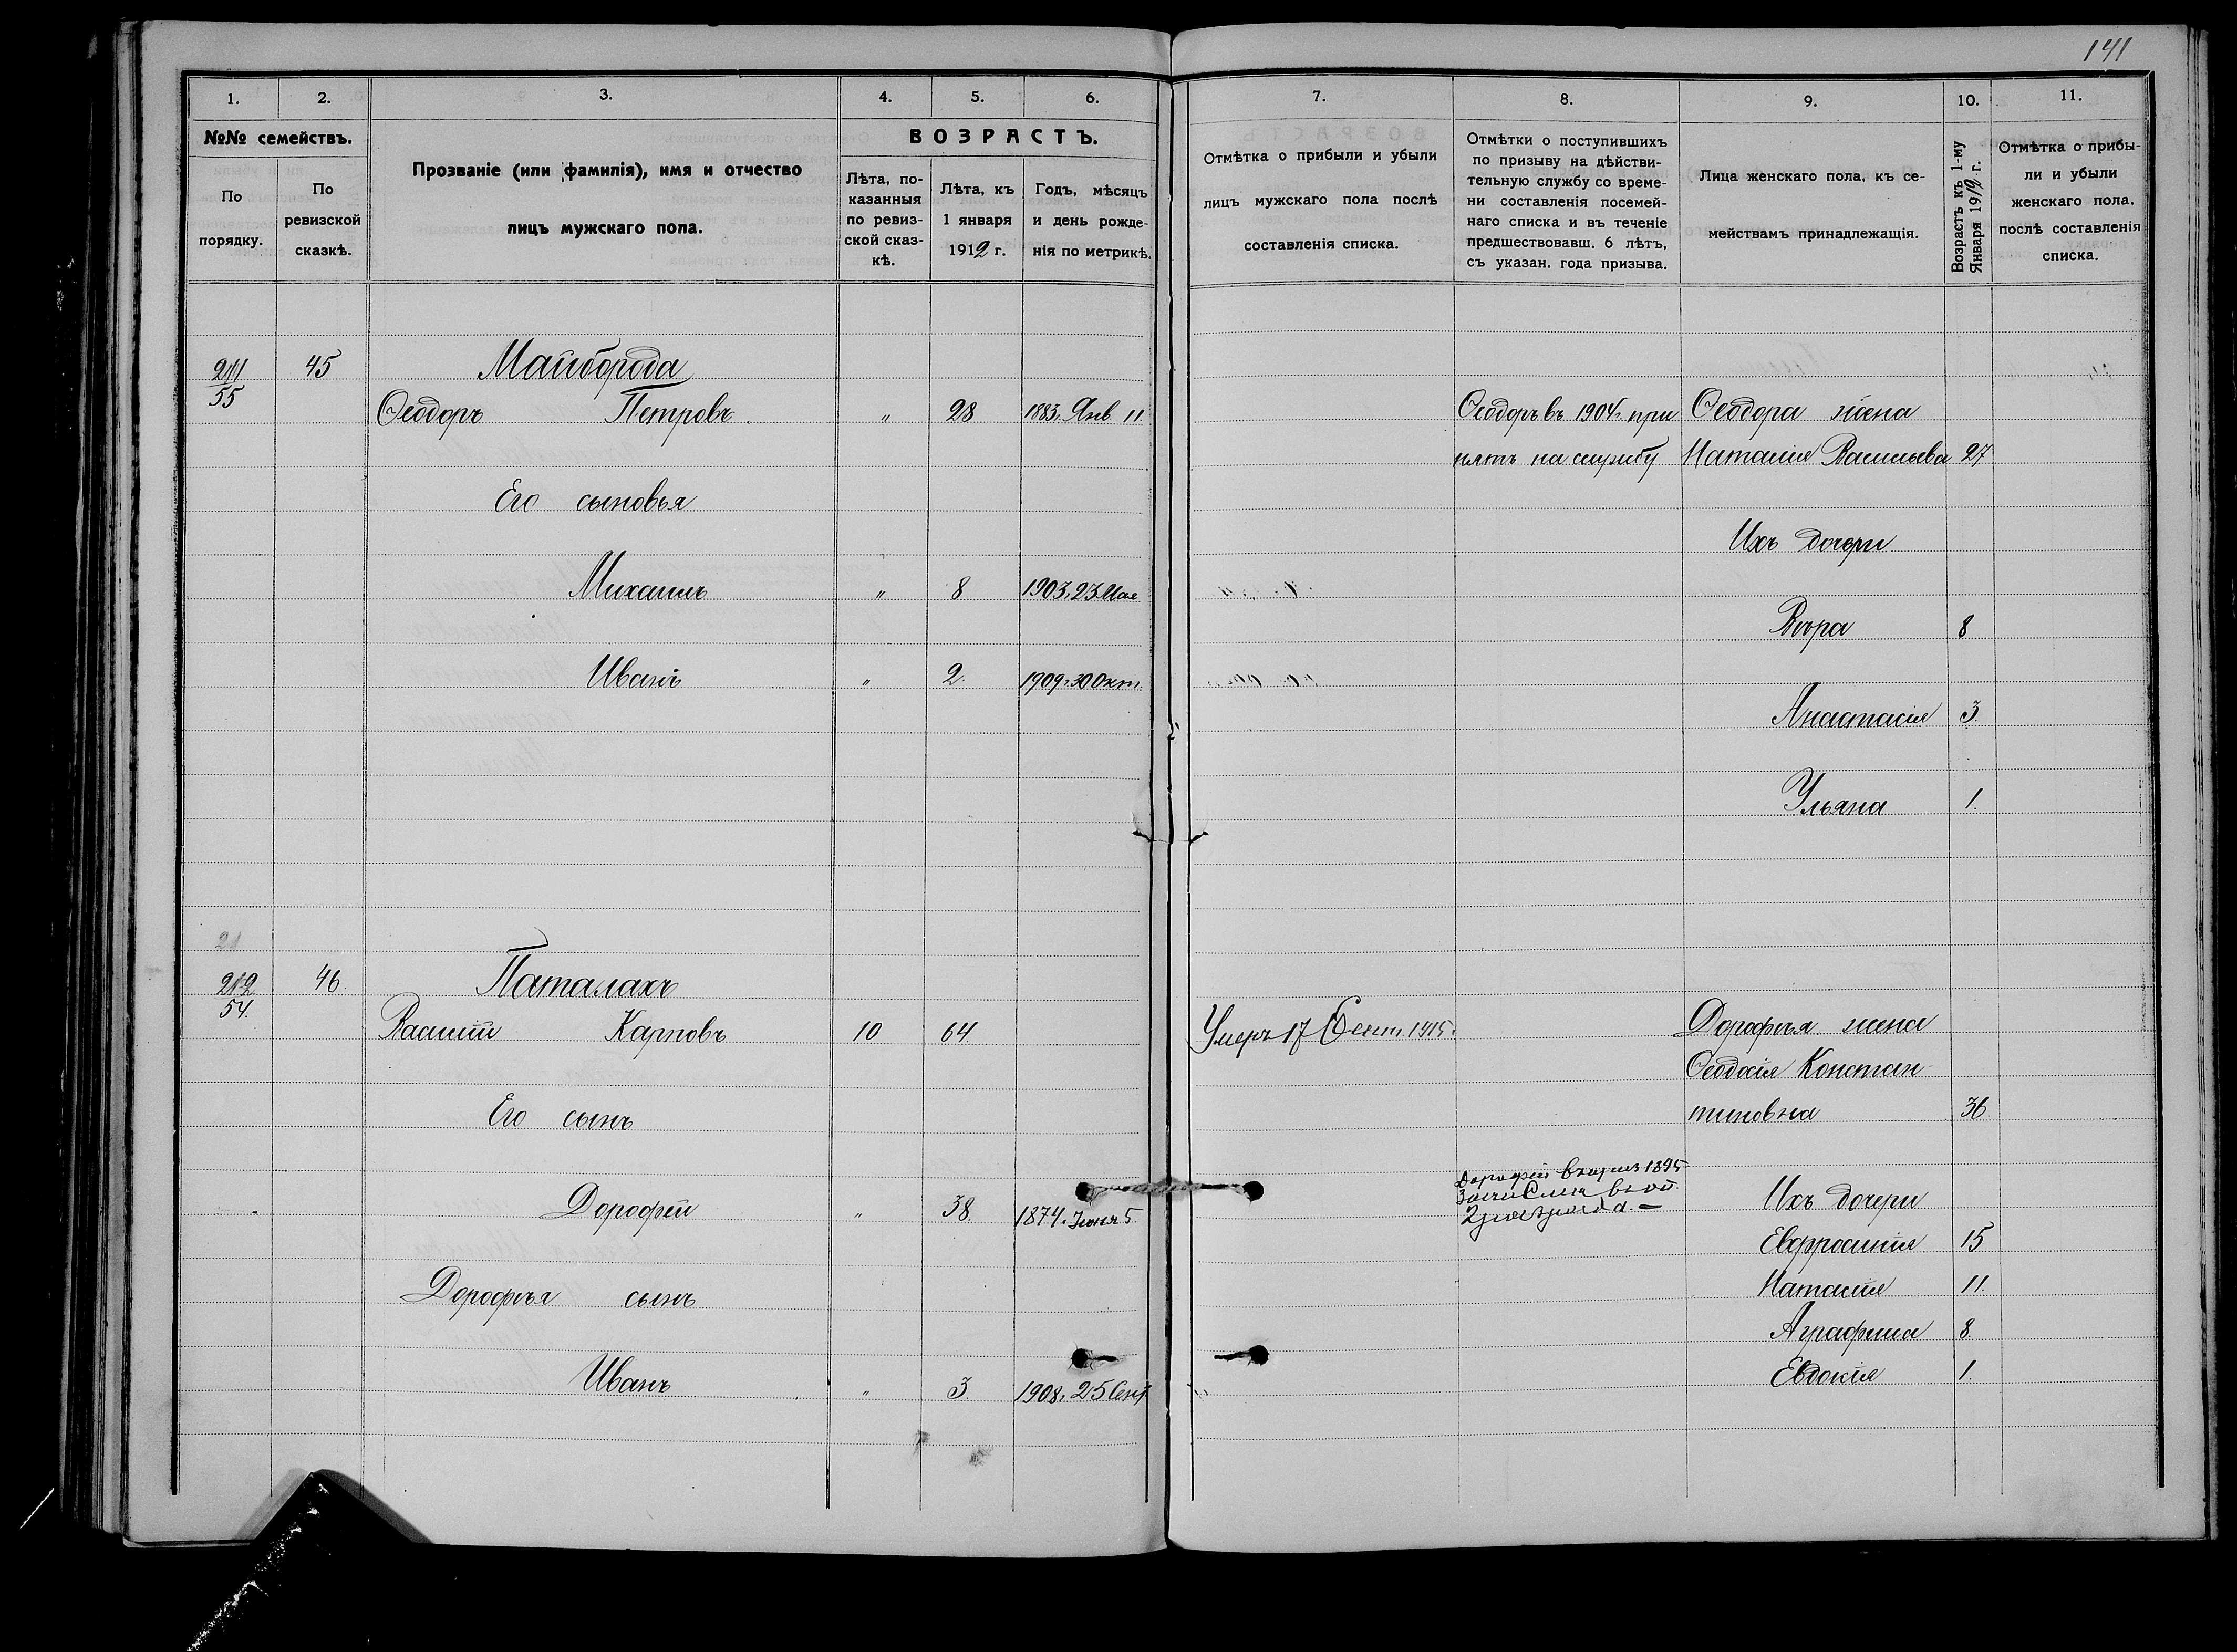 141
1. 2. 3. 4. 5. 6. 7. 8. 9. 10. 11.
№№ семействъ.
По порядку.
По ревизской сказкѣ.
Прозваніе (или фамилія), имя и отчество
лицъ мужскаго пола.
ВОЗРАСТЪ.
Лѣта, по-
казанныя
по ревиз-
ской сказ-
кѣ.
Лѣта, къ
1 января
1912 г.
Годъ, мѣсяцъ
и день рожде-
нія по метрикѣ.
Отмѣтка о прибыли и убыли
лицъ мужскаго пола послѣ
составленія списка.
Отмѣтки о поступившихъ
по призыву на дѣйстви-
тельную службу со време-
ни составленія посемей-
наго списка и въ теченіе
предшествовавш. 6 лѣтъ,
съ указан. года призыва.
Лица женскаго пола, къ се-
мействамъ принадлежащія.
Возрастъ къ 1-му
Января 1912 г.
Отмѣтка о прибы-
ли и убыли
женскаго пола,
послѣ составленія
списка.
211 45 Майборода
55
Ѳеодоръ Петровъ. " 28 1883. Янв 11 Ѳеодоръ въ 1904 г. при Ѳеодора жена
нятъ на службу Наталія Васильева 27
Его сыновья
Ихъ дочери
Михаилъ " 8 1903, 23 Мая
Вѣра 8
Иванъ " 2. 1909, 30 Окт.
Анастасія 3.
Ульяна 1.
21
212 46. Паталахъ
54.
Василій Карповъ 10 64. Умеръ 17 Сент. 1915. Дорофѣя жена
Ѳеодосія Констан
тиновна 36
Его сынъ
Дорофей въ 1895
зачисленъ въ оп.
2 разряда. —
Дорофей " 38. 1874. Іюня 5. Ихъ дочери
Евфросинія 15
Наталія 11.
Дорофѣя сынъ
Аграфина 8
Иванъ " 3. 1908, 25 Сент
Евдокія 1.